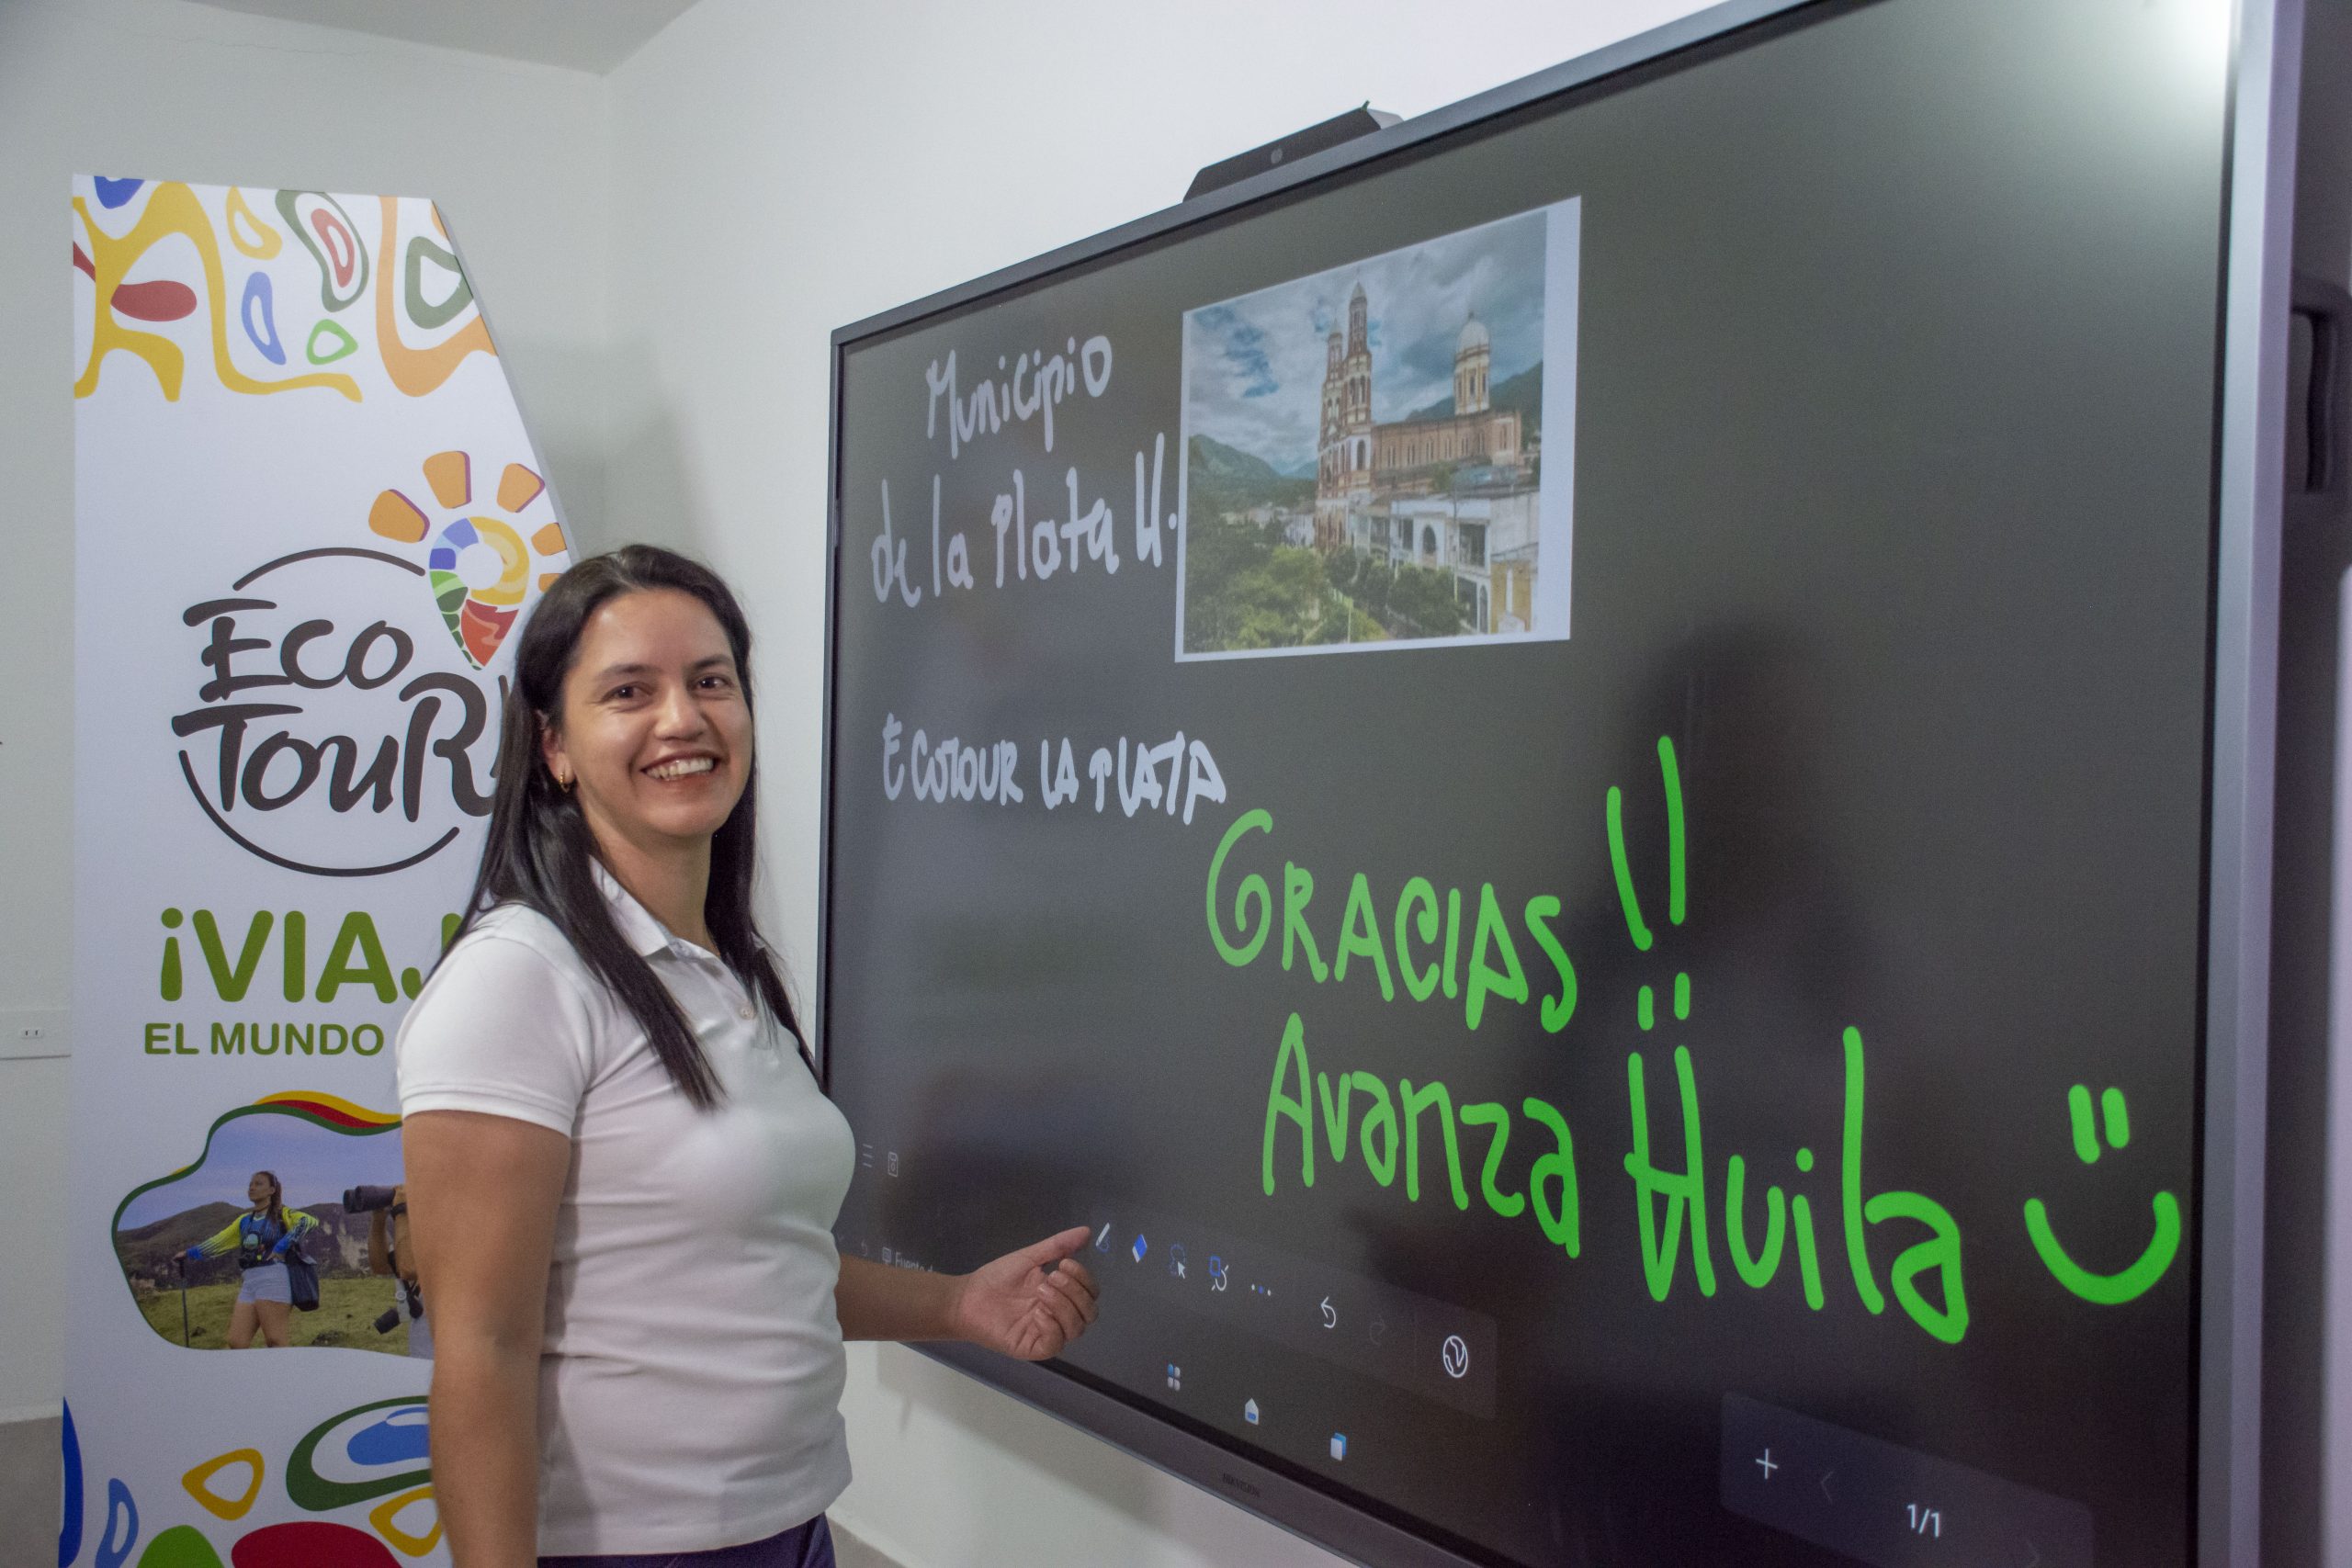 ECO
TOUR
¡VIAJ
EL MUNDO
Municipio
de la Plata H.
ECOTOUR LA PLATA
GRACIAS !!
Avanza Huila
1/1